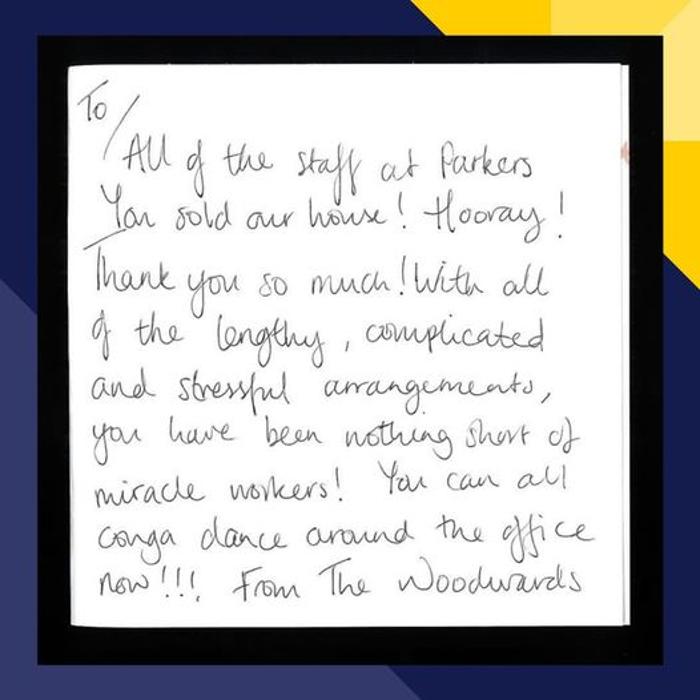 To/
All of the staff at Parkers
You sold our house! Hooray!
Thank you so much! With all
of the lengthy, complicated
and stressful arrangements,
you have been nothing short of
miracle workers! You can all
conga dance around the office
now!!! From The Woodwards